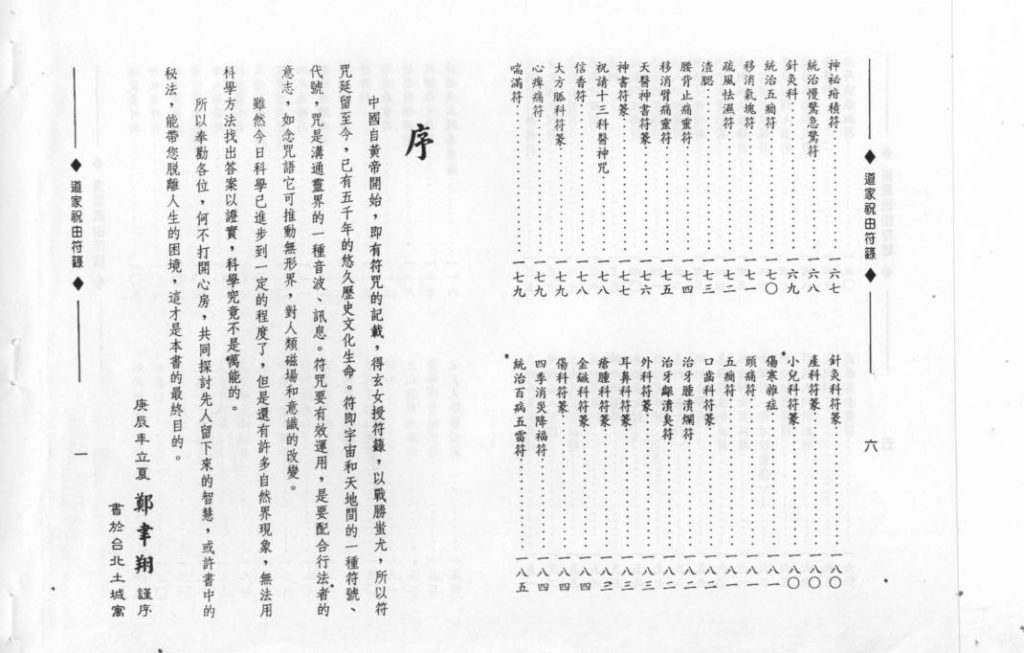 道家祝由符籙
六
神祕痞積符 一六七
統治慢驚急驚符 一六八
針灸科 一六九
統治五癇符 一七〇
移消氣塊符 一七一
疏風怯濕符 一七二
渣腮 一七三
腰背止痛靈符 一七四
移消臂痛靈符 一七五
天醫神書符篆 一七六
神書符篆 一七七
祝請十三科醫神咒 一七八
信香符 一七八
大方脈科符篆 一七八
心痺痛符 一七九
喘滿符 一七九
針灸科符篆 一八〇
產科符篆 一八〇
小兒科符篆 一八〇
傷寒雜症 一八一
頭痛符 一八一
五癇符 一八一
口齒科符篆 一八二
治牙腫潰爛符 一八二
治牙齦潰臭符 一八二
外科符篆 一八三
耳鼻科符篆 一八三
瘡腫科符篆 一八三
金鏃科符篆 一八四
傷科符篆 一八四
四季消災降福符 一八四
統治百病五雷符 一八五
序
中國自黃帝開始，即有符咒的記載，得玄女授符籙，以戰勝蚩尤，所以符
咒延留至今，已有五千年的悠久歷史文化生命。符即宇宙和天地間的一種符號、
代號，咒是溝通靈界的一種音波、訊息。符咒要有效運用，是要配合行法者的
意志，如念咒語它可推動無形界，對人類磁場和意識的改變。
雖然今日科學已進步到一定的程度了，但是還有許多自然界現象，無法用
科學方法找出答案以證實，科學究竟不是萬能的。
所以奉勸各位，何不打開心房，共同探討先人留下來的智慧，或許書中的
秘法，能帶您脫離人生的困境，這才是本書的最終目的。
庚辰年立夏 鄭聿翔 謹序
書於台北土城寓
道家祝由符籙
一